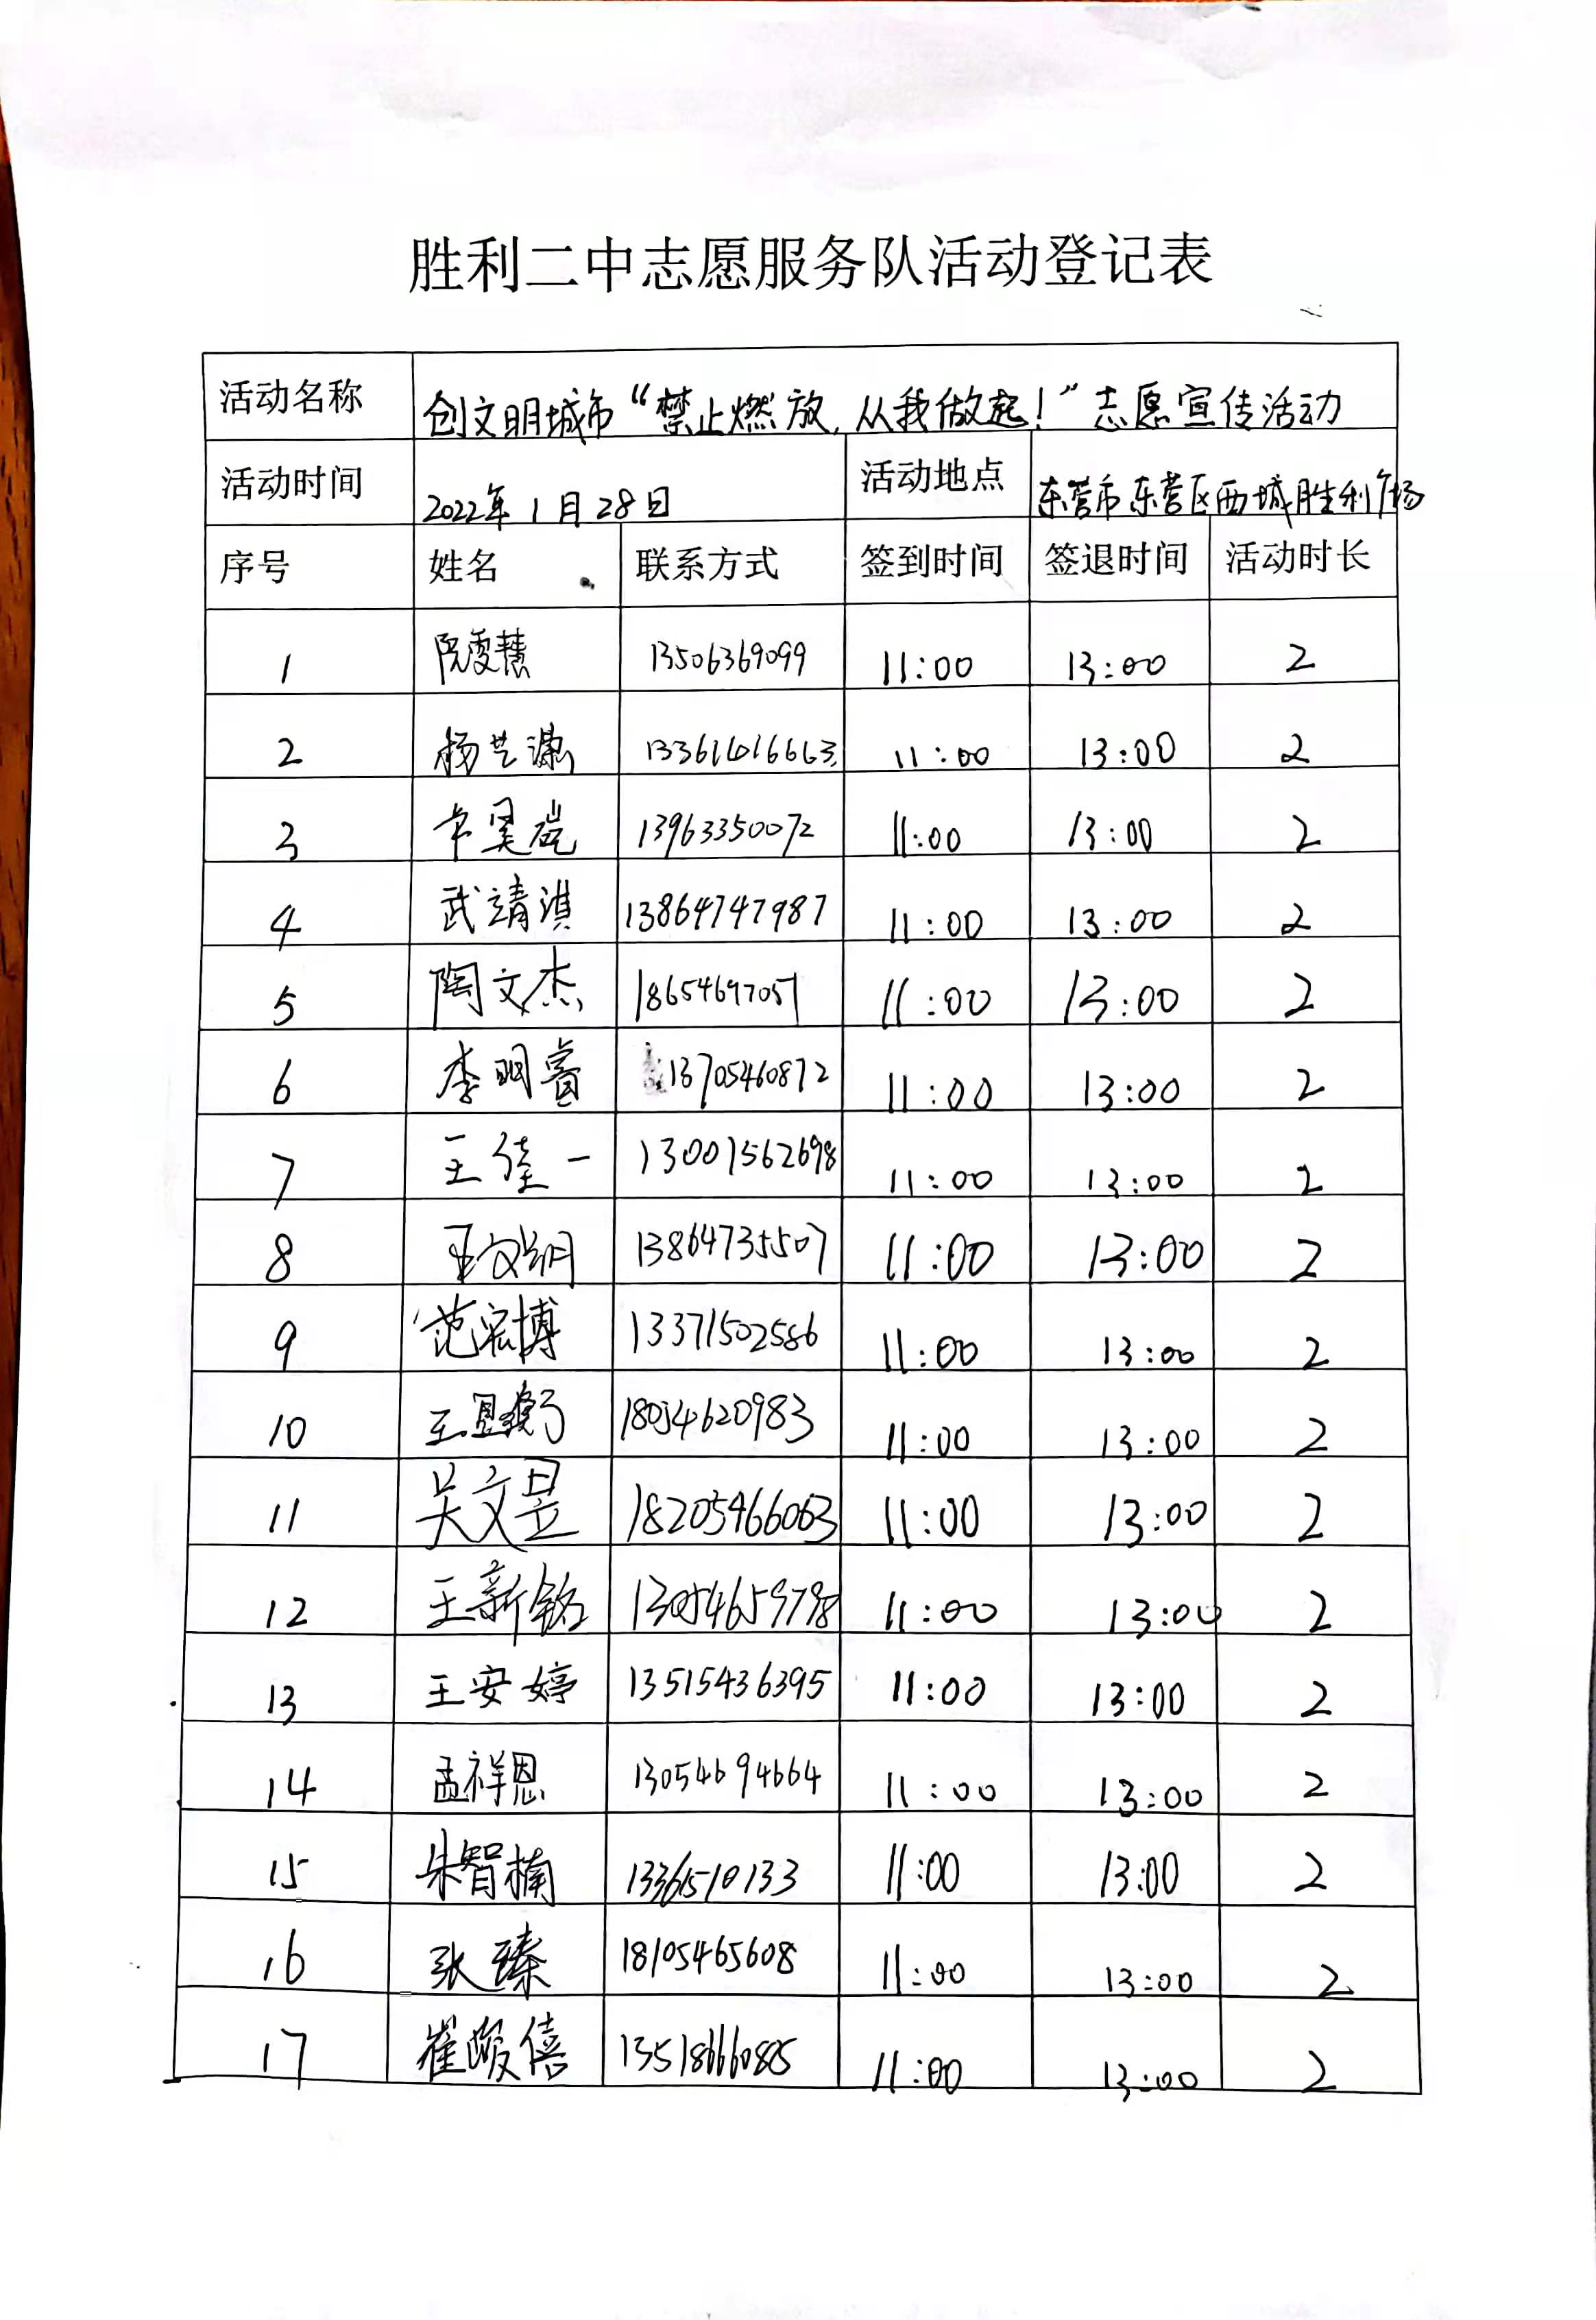 胜利二中志愿服务队活动登记表
活动名称 创文明城市“禁止燃放,从我做起!”志愿宣传活动
活动时间 2022年1月28日 活动地点 东营市东营区西城胜利广场
序号 姓名 联系方式 签到时间 签退时间 活动时长
1 阮雯慧 13506369099 11:00 13:00 2
2 杨艺 11:00 13:00 2
3 昊 13963350072 11:00 13:00 2
4 武靖淇 13864747987 11:00 13:00 2
5 陶文杰 18654697051 11:00 13:00 2
6 李明睿 13705460872 11:00 13:00 2
7 王佳一 13001562698 11:00 13:00 2
8 王 13864735507 11:00 13:00 2
9 范宏博 13371502586 11:00 13:00 2
10 王 18054620983 11:00 13:00 2
11 吴文昱 18205466063 11:00 13:00 2
12 王新铭 13054659798 11:00 13:00 2
13 王安婷 13515436395 11:00 13:00 2
14 孟祥恩 13054694664 11:00 13:00 2
15 朱智楠 13361510133 11:00 13:00 2
16 张臻 18105465608 11:00 13:00 2
17 崔峻僖 13518666085 11:00 13:00 2